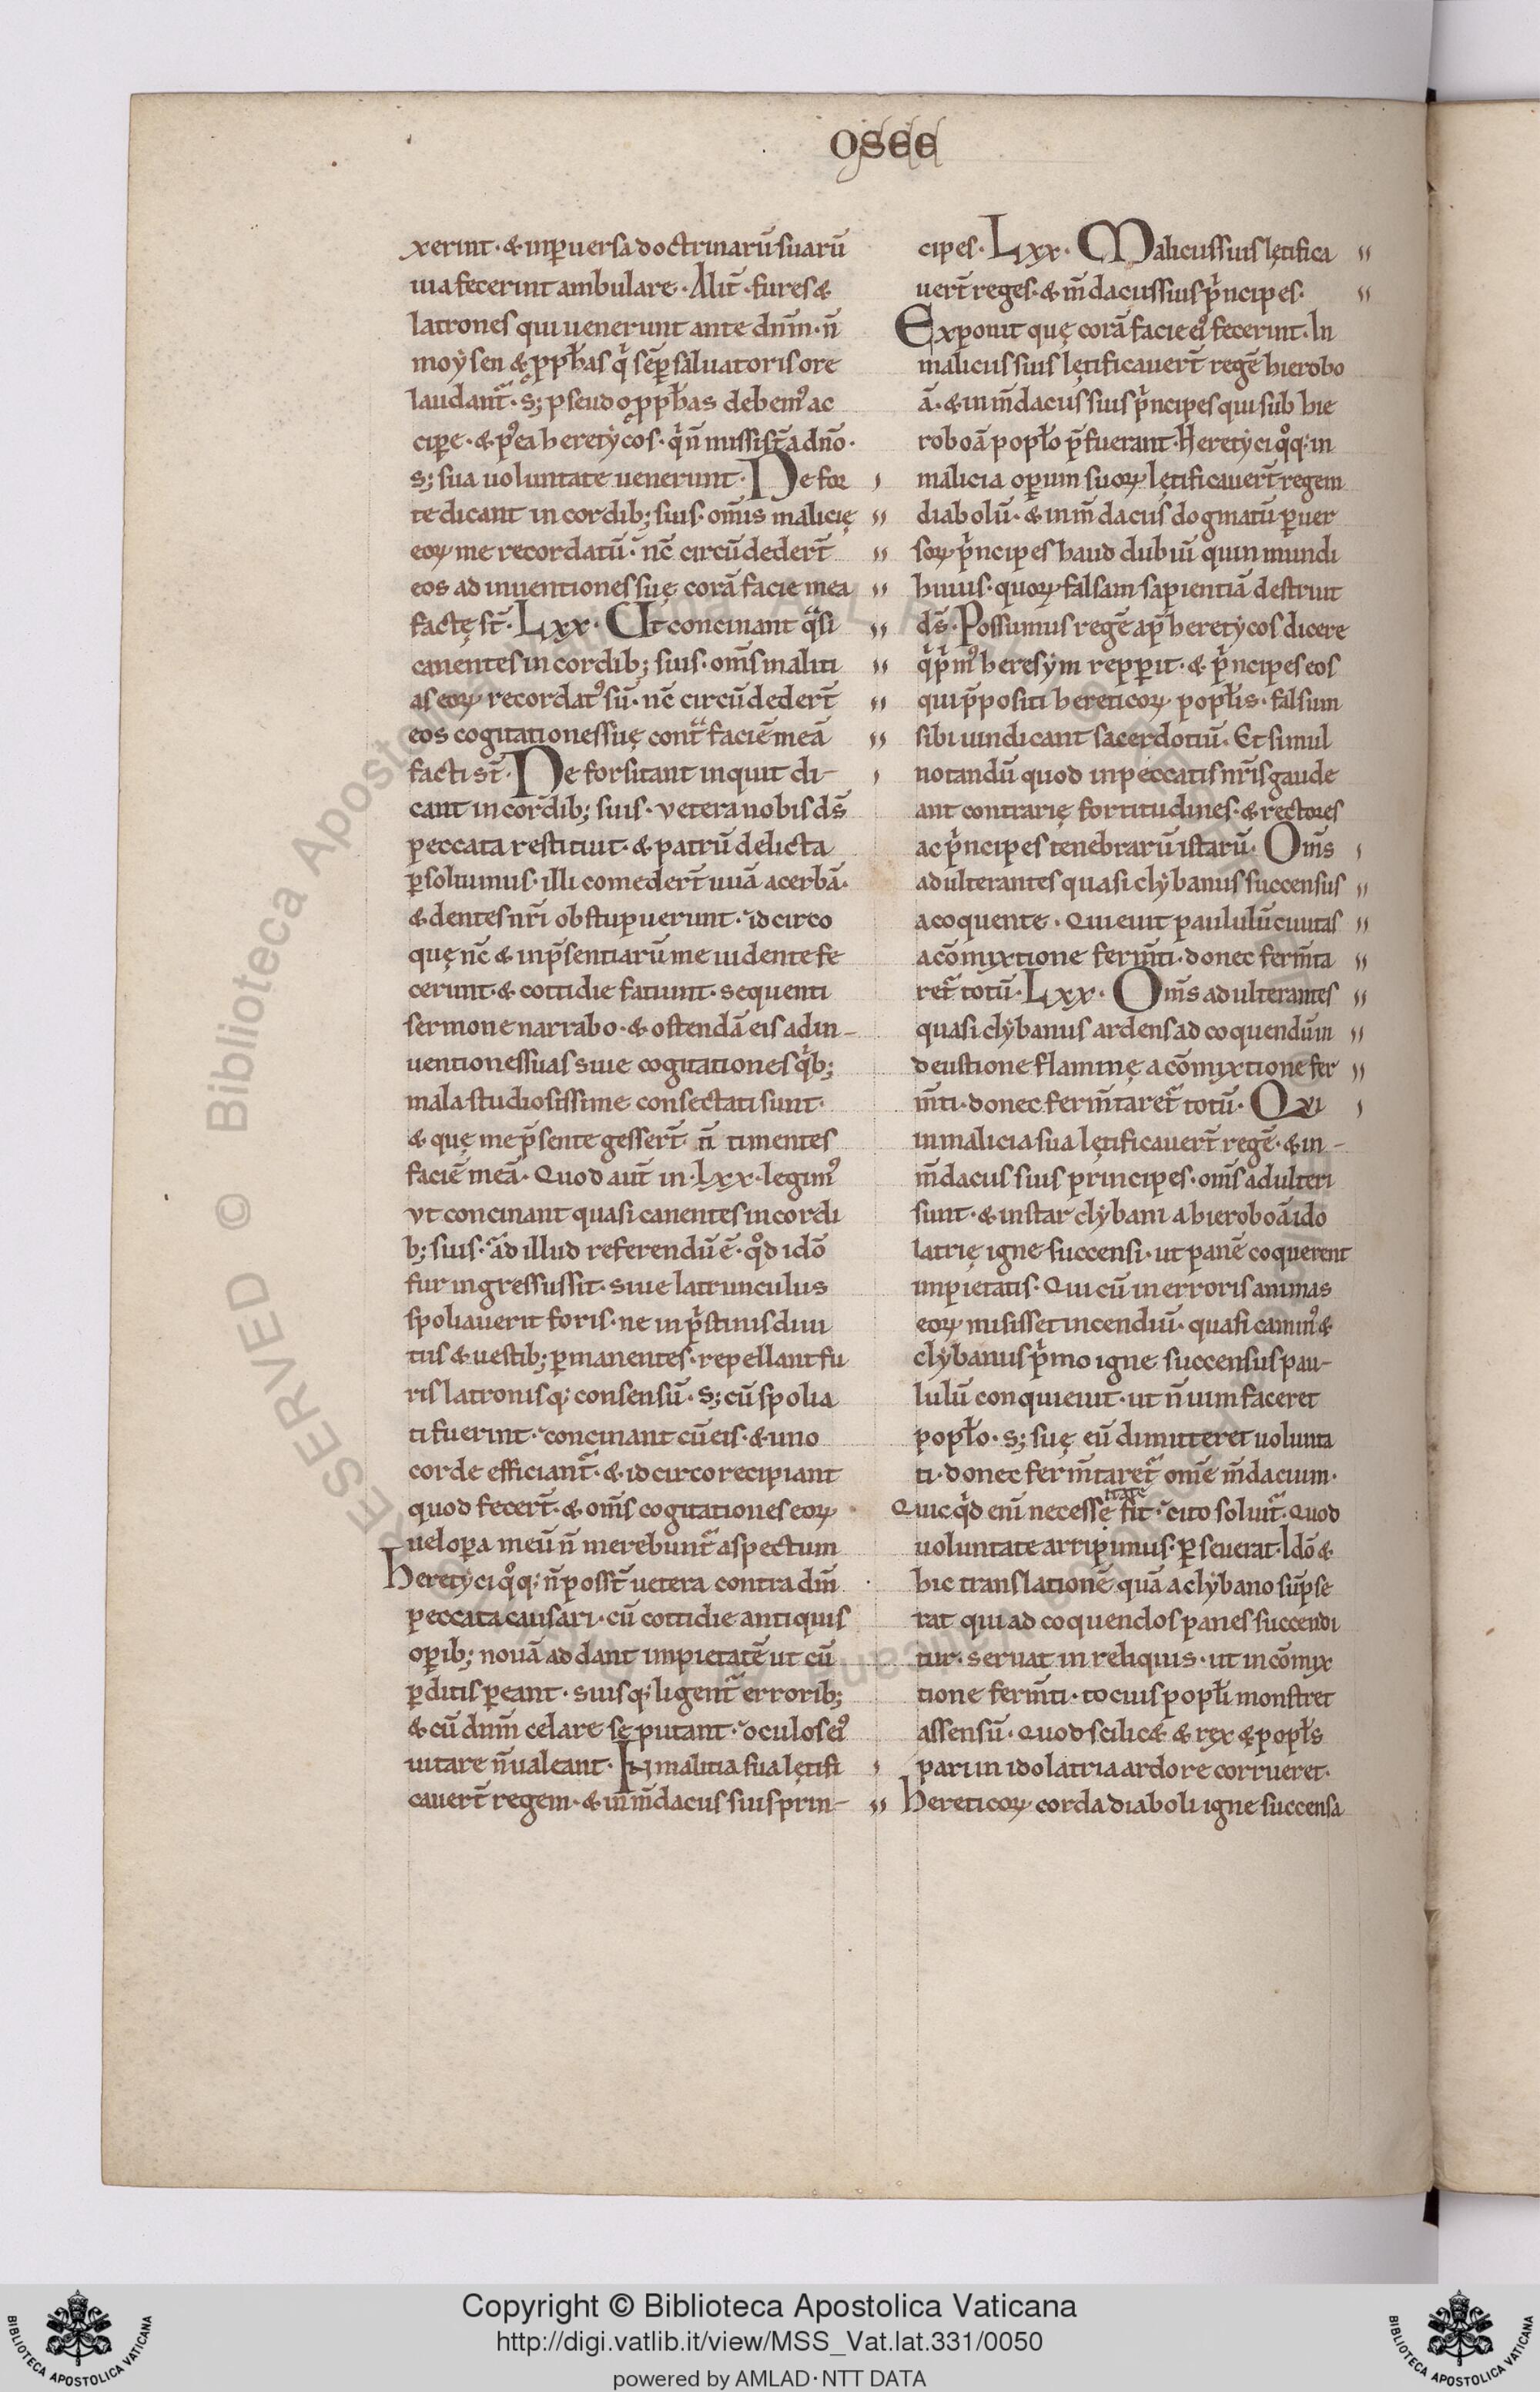 OSEE
xerint · & inp̱uersa doctrinarū suarū
uia fecerint ambulare · Alit̄ · fures &
latrones qui uenerunt ante dnm̄ · n̄
moẏsen & ꝓpħas qͥ sēp saluatoris ore
laudant᷑ · s; pseudo ꝓpħas debem᷒ ac
cipe · & p᷒ea heretẏcos · qͥ n̄ missi st̄ a dnō ·
s; sua uoluntate uenerunt · Ne for
te dicant in cordib; suis · om̄s malicię
eoꝝ me recordatū · nc̄ circūdedert̄
eos adinuentiones suę corā facie mea
factę st̄ · Lxx · Ut concinant qͣsi
canentes in cordib; suis · om̄s maliti
as eoꝝ recordat᷒ sū · nc̄ circūdedert̄
eos cogitationes suę contͣ faciē meā
facti st̄ · Ne forsitant inquit di-
cant in cordib; suis · vetera nobis ds̄
peccata restituit · & patrū delicta
ꝑsoluimus · illi comedert̄ uuā acerbā ·
& dentes nr̄i obstupuerunt · idcirco
quę nc̄ & inp̄sentiarū me uidente fe
cerunt · & cottidie fatiunt · sequenti
sermone narrabo · & ostendā eis adin-
uentiones suas siue cogitationes qͥb;
mala studiosissime consectati sunt ·
& quę me p̄sente gessert̄ n̄ timentes
faciē meā · Quod aut̄ in · Lxx · legim᷒
vt concinant quasi canentes in cordi
b; suis · ad illud referendū ē · qͦd idō
fur ingressus sit · siue latrunculus
spoliauerit foris · ne in pͥstinis diui
tiis & uestib; ꝑmanentes · repellant fu
ris latronisq; consensū · s; cū spolia
ti fuerint · concinant cū eis · & uno
corde efficiant᷑ · & idcirco recipiant
quod fecert̄ · & om̄s cogitationes eoꝝ
uel oꝑa meū n̄ merebunt᷑ aspectum
Heretẏci qͦq; n̄ posst̄ uetera contra dm̄
peccata causari · cū cottidie antiquis
oꝑib; nouā addant impietatē ut cū
ꝑditis ꝑeant · suisq; ligent᷑ errorib;
& cū dnm̄ celare se putant · oculos ei᷒
uitare n̄ ualeant · IN malitia sua lętifi
cauert̄ regem · & in m̄dacus suis prin-
cipes · Lxx · Malicus suis lętifica
uert̄ reges · & m̄dacus suis pͥncipes ·
Exponit quę corā facie ei᷒ fecerint · In
malicus suis lętificauert̄ regē hierobo
ā · & in m̄dacus suis pͥncipes qui sub hie
roboā popł̄o p̄fuerant · Heretẏci qͦq; in
malicia oꝑum suoꝝ lętificauert̄ regem
diabolū · & in m̄dacus dogmatū ꝑuer
soꝝ pͥncipes haud dubiū quin mundi
huius · quoꝝ falsam sapientiā destruit
ds̄ · Possumus regē ap̄ heretẏcos dicere
qͥ pͥm᷒ heresẏm repꝑit · & pͥncipes eos
qui p̄positi hereticoꝝ popł̄is · falsum
sibi uindicant sacerdotiū · Et simul
notandū quod in peccatis nr̄is gaude
ant contrarię fortitudines · & rectores
ac pͥncipes tenebrarū istarū · Om̄s
adulterantes quasi clẏbanus succensus
a coquente · Quieuit paululū ciuitas
a cōmyxtione ferm̄ti · donec ferm̄ta
ret᷑ totū · Lxx · Om̄s adulterantes
quasi clẏbanus ardens ad coquendūm
de ustione flammę a cōmyxtione fer
m̄ti · donec ferm̄taret᷑ totū · Qui
in malicia sua lętificauert̄ regē · & in-
m̄dacus suis principes · om̄s adulteri
sunt · & instar clẏbani a hieroboā ido
latrię igne succensi · ut panē coquerent
impietatis · Qui cū in erroris animas
eoꝝ misisset incendiū · quasi camin᷒ &
clẏbanus pͥmo igne succensus pau-
lulū conquieuit · ut n̄ uim faceret
popł̄o · s; suę eū dimitteret uolunta
ti · donec ferm̄taret᷑ om̄e m̄dacium ·
Quicqͥd enī necessę itate fit · cito soluit᷑ · Quod
uoluntate arripimus · ꝑseuerat · Idō &
hic translationē quā a clẏbano sūpse
rat qui ad coquendos panes succendi
tur · seruat in reliquis · ut in cōmyx
tione ferm̄ti · tocius popł̄i monstret
assensū · Quod scilic& & rex & popł̄s
pari in idolatria ardore corrueret ·
Hereticoꝝ corda diaboli igne succensa
RESERVED © Biblioteca Apostolica
Copyright © Biblioteca Apostolica Vaticana
http://digi.vatlib.it/view/MSS_Vat.lat.331/0050
powered by AMLAD·NTT DATA
BIBLIOTECA APOSTOLICA VATICANA
BIBLIOTECA APOSTOLICA VATICANA